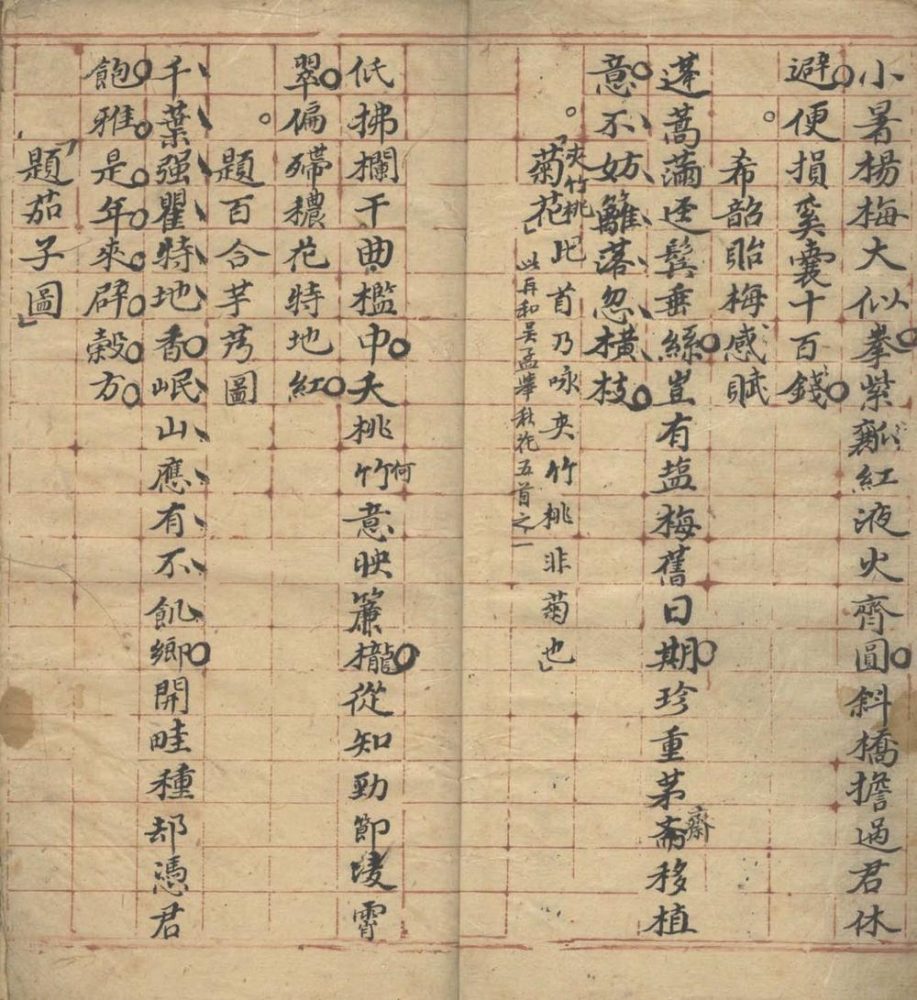 小暑楊梅大似拳紫瓤紅液火齊圓斜橋擔過君休
避便損奚囊十百錢
希韶貽梅感賦
蓬蒿滿逕鬂垂絲豈有盐梅舊日期珍重茅齋移植
齋
意不妨籬落忽橫枝
夾竹桃
「菊花」此首乃咏夾竹桃非菊也」
此再和吴孟舉秋花五首之一
低拂欄干曲檻中夭桃竹意映簾櫳從知勁節凌霄
何
翠偏殢穠花特地紅
題百合芋艿圖
千葉强瞿特地香岷山應有不飢鄉開畦種却憑君
飽雅是年來辟榖方
「題茄子圖」